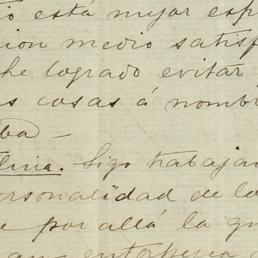 está mejor esp
cion medio satisf
he logrado evitar
s cosas á nombr
ba —
lina. Sigo trabajan
ersonalidad de lo
e por allá la gu
entorpezca